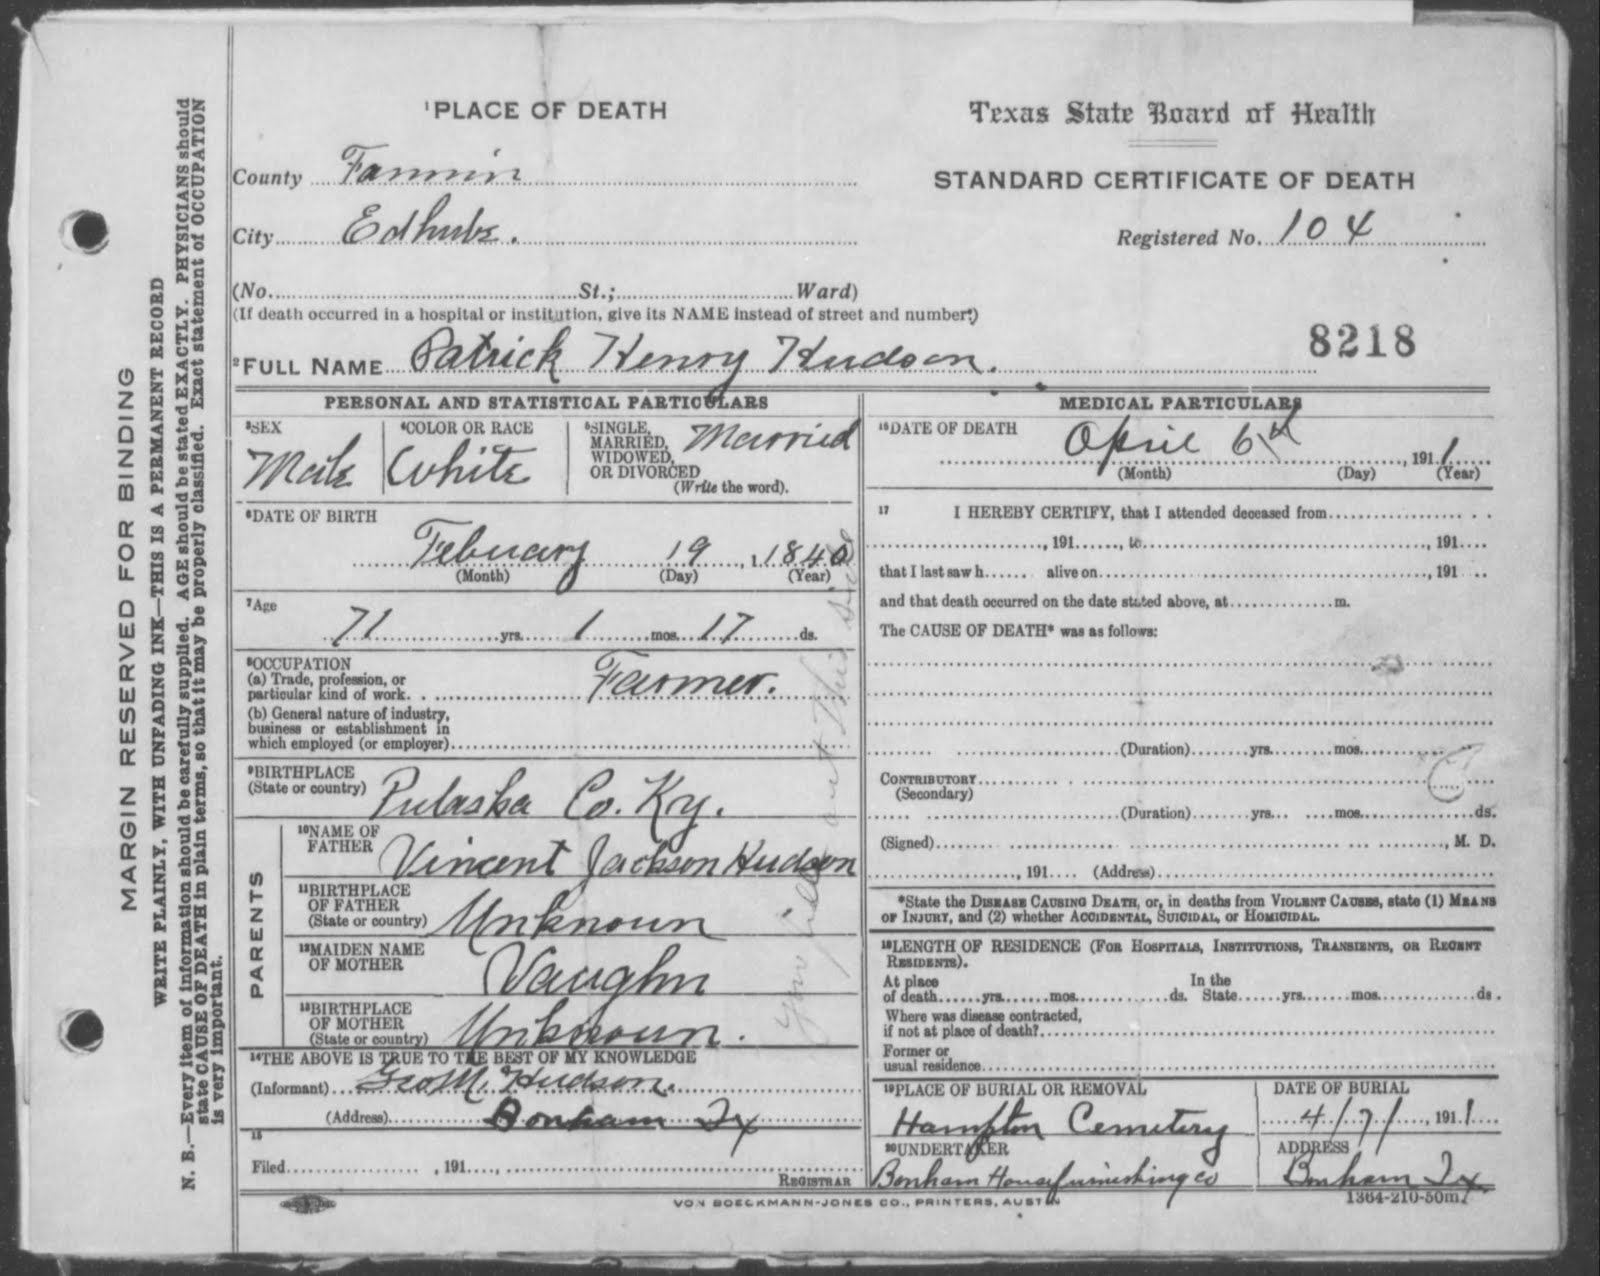 MARGIN RESERVED FOR BINDING
WRITE PLAINLY, WITH UNFADING INK—THIS IS A PERMANENT RECORD
N. B.—Every item of information should be carefully supplied. AGE should be stated EXACTLY. PHYSICIANS should
state CAUSE OF DEATH in plain terms, so that it may be properly classified. Exact statement of OCCUPATION
is very important.
1PLACE OF DEATH
Texas State Board of Health
County Fannin
STANDARD CERTIFICATE OF DEATH
City Edhube.
Registered No. 104
(No. St.; Ward)
(If death occurred in a hospital or institution, give its NAME instead of street and number.)
8218
2FULL NAME Patrick Henry Hudson.
PERSONAL AND STATISTICAL PARTICULARS
3SEX Male
4COLOR OR RACE White
5SINGLE, MARRIED, WIDOWED, OR DIVORCED (Write the word). Married
6DATE OF BIRTH
February 19, 1 1840
(Month) (Day) (Year)
7Age
71 yrs. 1 mos. 17 ds.
8OCCUPATION
(a) Trade, profession, or
particular kind of work. Farmer.
(b) General nature of industry,
business or establishment in
which employed (or employer)
9BIRTHPLACE
(State or country) Pulaska Co. Ky.
PARENTS
10NAME OF
FATHER Vincent Jackson Hudson
11BIRTHPLACE
OF FATHER
(State or country) Unknown
12MAIDEN NAME
OF MOTHER Vaughn
13BIRTHPLACE
OF MOTHER
(State or country) Unknown.
14THE ABOVE IS TRUE TO THE BEST OF MY KNOWLEDGE
(Informant) Geo M. Hudson.
(Address) Bonham Tx
15
Filed , 191 ,
REGISTRAR
out this side
MEDICAL PARTICULARS
16DATE OF DEATH
April 6th , 191 1
(Month) (Day) (Year)
17 I HEREBY CERTIFY, that I attended deceased from
, 191 , to , 191
that I last saw h alive on , 191
and that death occurred on the date stated above, at m.
The CAUSE OF DEATH* was as follows:
(Duration) yrs. mos.
CONTRIBUTORY
(Secondary)
(Duration) yrs. mos. ds.
(Signed) , M. D.
, 191 (Address)
*State the DISEASE CAUSING DEATH, or, in deaths from VIOLENT CAUSES, state (1) MEANS
OF INJURY, and (2) whether ACCIDENTAL, SUICIDAL, or HOMICIDAL.
18LENGTH OF RESIDENCE (FOR HOSPITALS, INSTITUTIONS, TRANSIENTS, OR RECENT
RESIDENTS).
At place In the
of death yrs. mos. ds. State yrs. mos. ds.
Where was disease contracted,
if not at place of death?
Former or
usual residence
19PLACE OF BURIAL OR REMOVAL
Hampton Cemetery
DATE OF BURIAL
4/7/ , 191 1
20UNDERTAKER
Bonham House furnishing co
ADDRESS
Bonham Tx
VON BOECKMANN-JONES CO., PRINTERS, AUSTIN
1364-210-50m